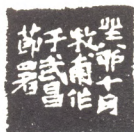 癸卯十月
牧甫作
于武昌
節署